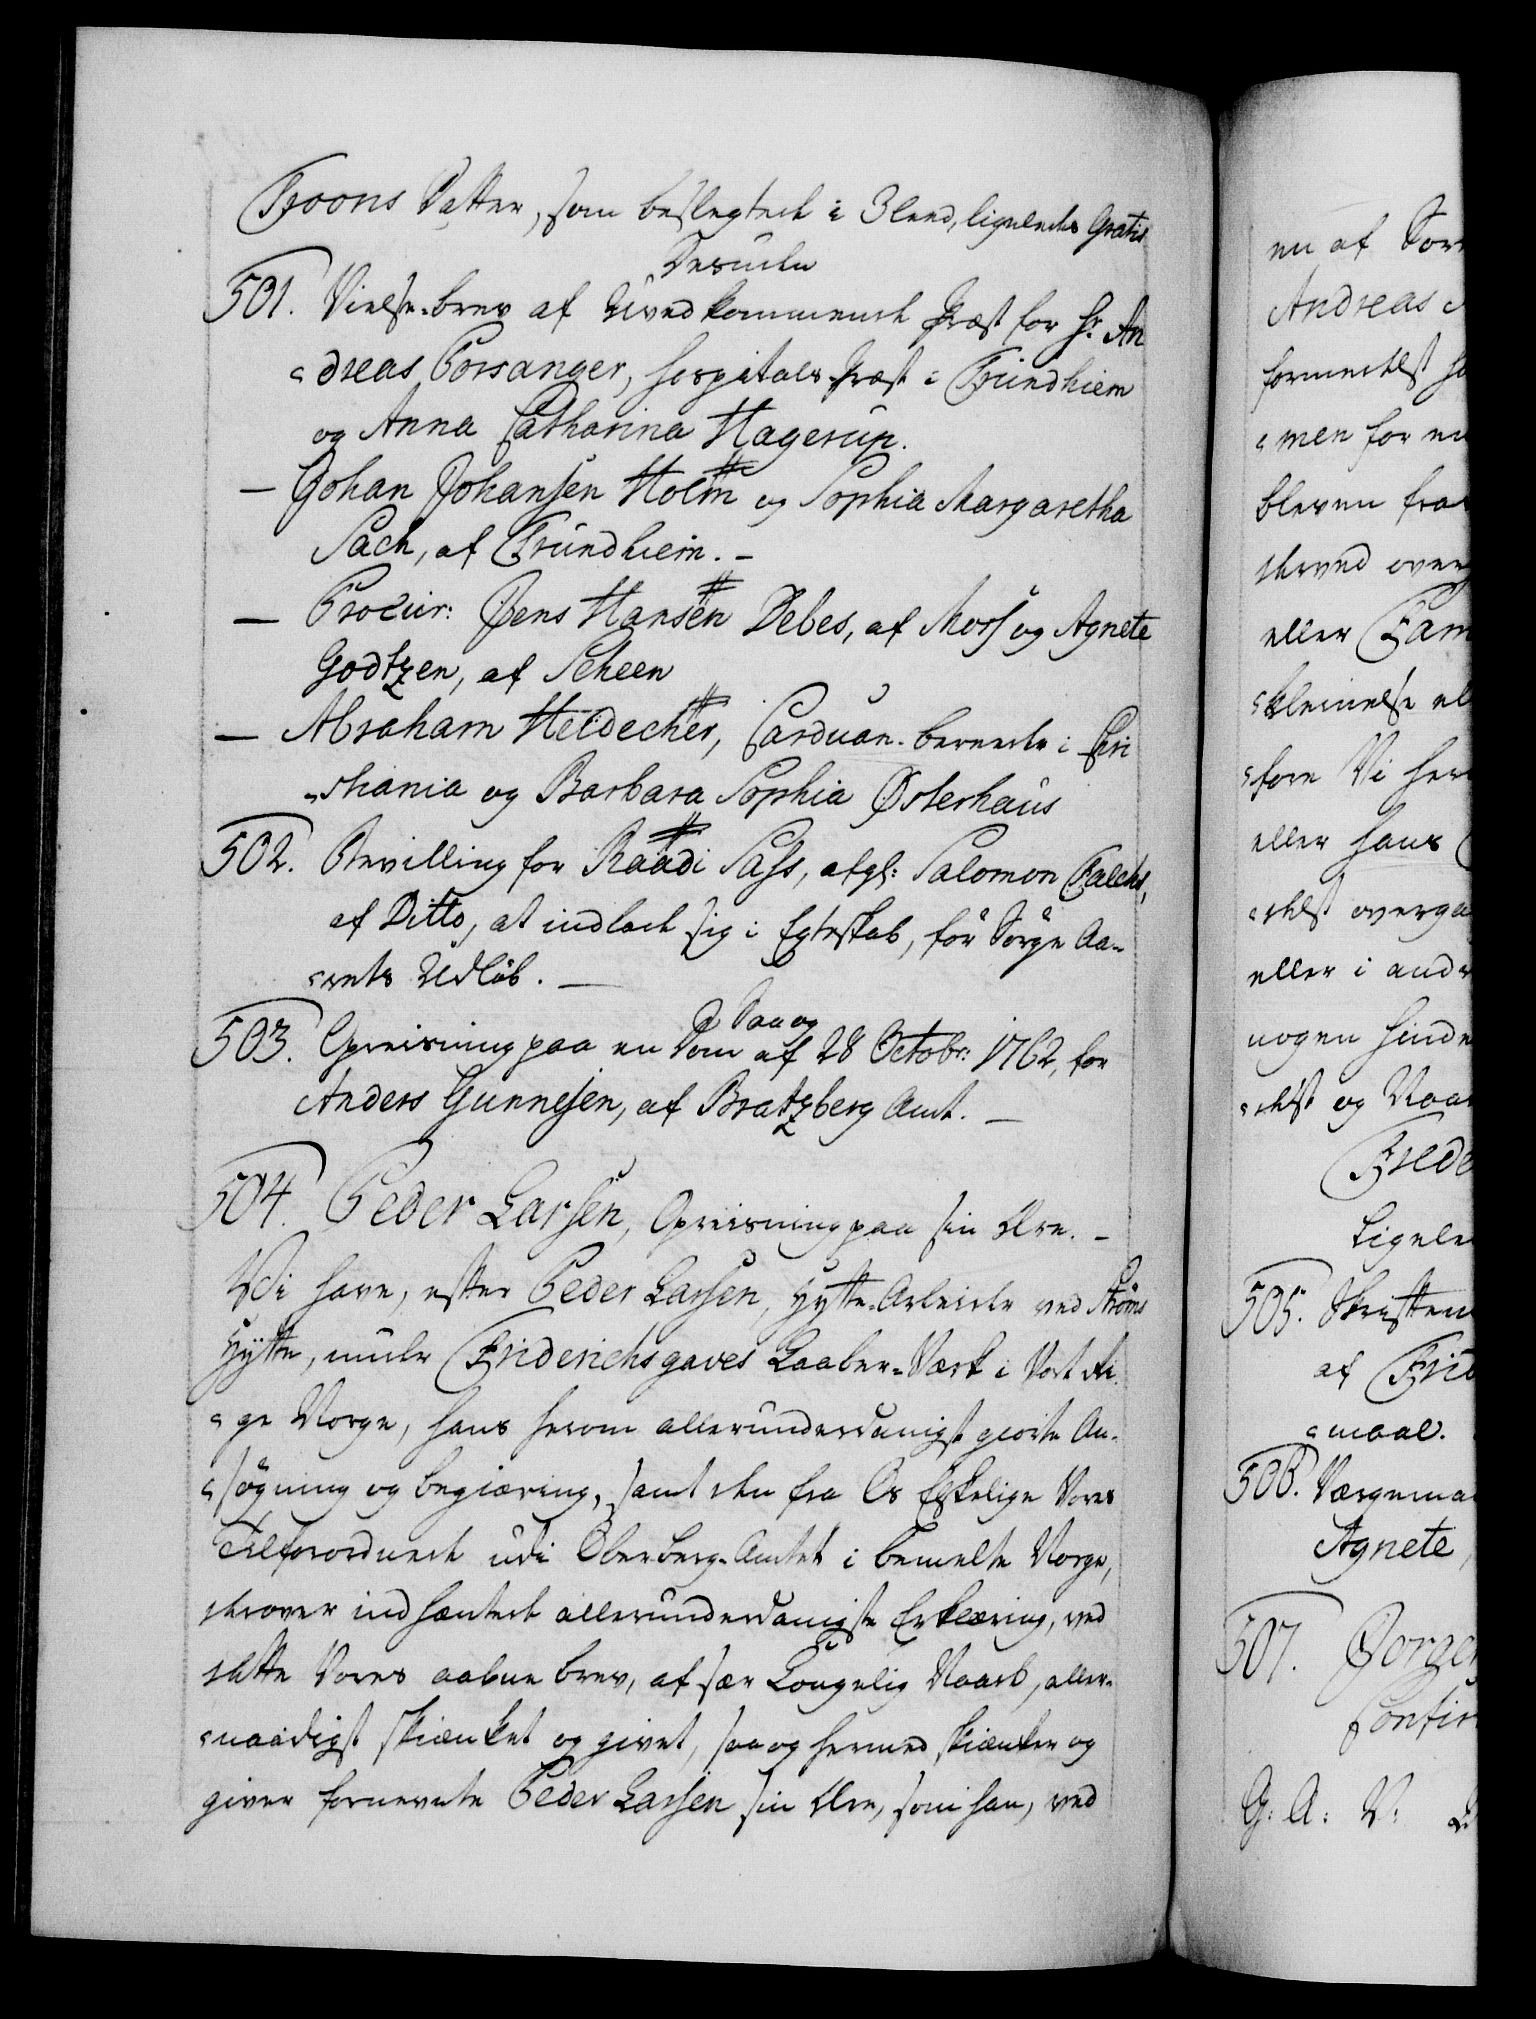 Troons Datter, som beslegtede i 3 leed, ligeledes Gratis
Desuden
501. Vielse-brev af Uvedkommende Præst for Hr. An
dreas Porsanger, Hospitals-Præst i Trundhiem
og Anna Catharina Hagerup.
— Johan Johansen Holm og Sophia Margaretha
Sach, af Trundhiem. —
— Procur: Jens Hansen Debes, af Moss og Agnete
Godtzen, af Scheen
— Abraham Heldecher, Carduan-bereder i Chri
stiania og Barbara Sophia Østerhaus
502. Bevilling for Raadi Sass, afgl: Salomon Falchs,
af Ditto, at indlade sig i Egteskab, før Sørge Aa-
rets Udløb. —
Saa og
503. Opreisning paa en Dom af 28 Octobr: 1762, for
Anders Gunnesen, af Bratzberg Amt. —
504. Peder Larsen, Opreisning paa sin Ære. —
Vi have, efter Peder Larsen, Hytte-Arbeider ved Strøms
Hytte, under Friderichsgaves Kaaber-Værk i Vort Ri-
ge Norge, hans herom allerunderdanigst giorte An-
søgning og begiæring, samt den fra Os Elskelige Vores
Tilforordnede udi Oberberg-Amtet i bemelte Norge,
derover indhæntede allerunderdanigste Erklæring, ved
dette Vores aabne brev, af sær Kongelig Naade, aller-
naadigst skiænket og givet, saa og hermed skiænker og
giver fornevnte Peder Larsen sin Ære, som han, ved
en af Sor
Andreas
formedelst
men for
bleven fra
derved over
eller Fam
eller hans
delst overga
eller i andr
nogen hinde
delst og Naa
Frede
Ligele
505.
af Frid
maal.
506. Værgema
Agnete,
507. Jørgen
Confir
G: A: V: